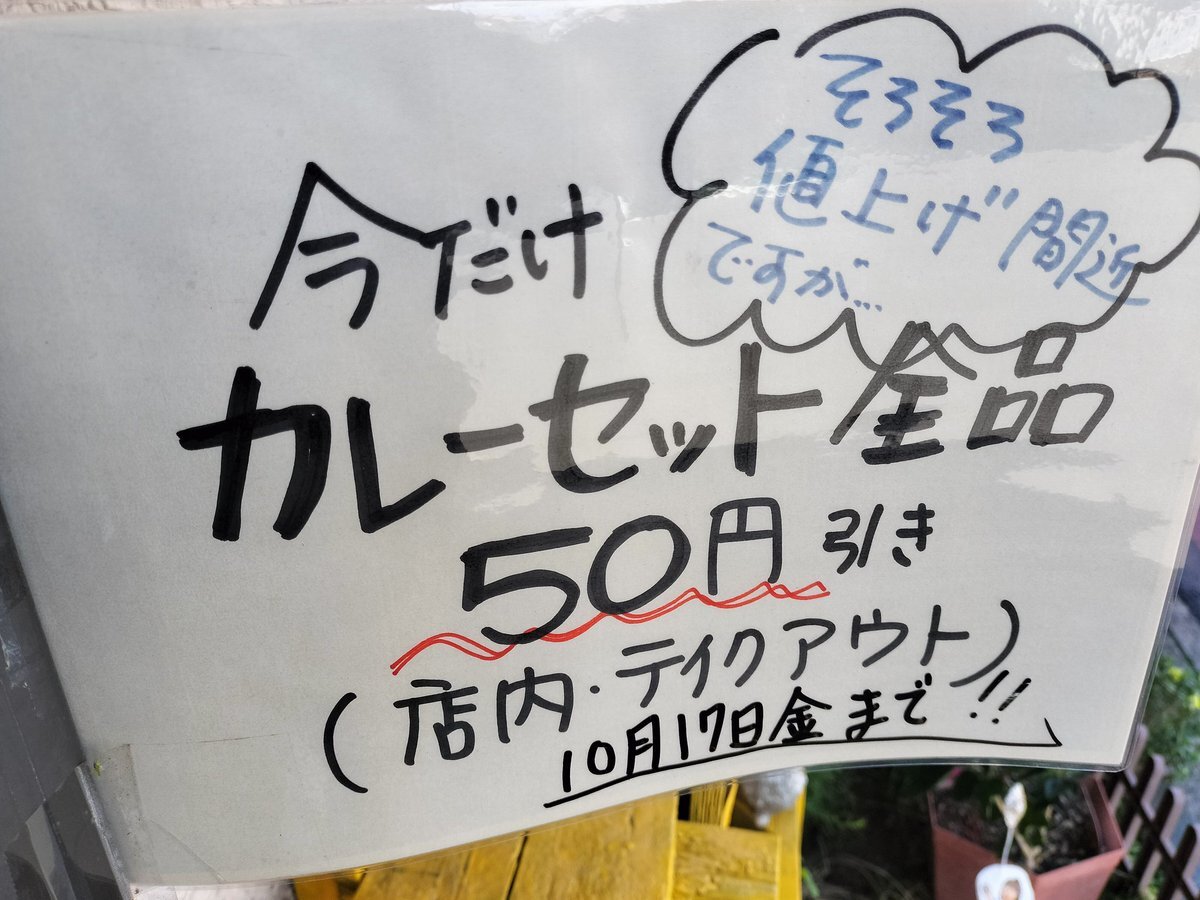 そろそろ
値上げ間近
ですが…
今だけ
カレーセット全品
50円引き
(店内・テイクアウト)
10月17日金まで!!